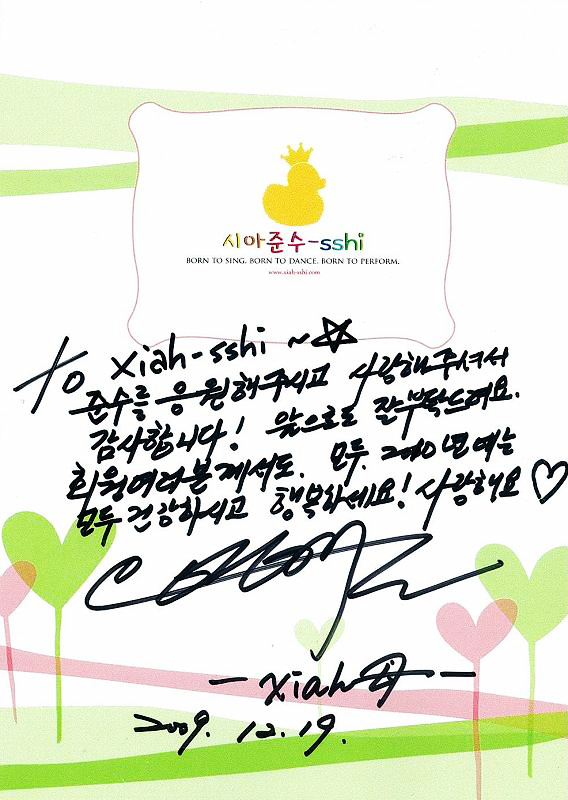 시아준수-sshi
BORN TO SING. BORN TO DANCE. BORN TO PERFORM.
www.xiah-sshi.com
To xiah-sshi ~☆
준수를 응원해주시고 사랑해주셔서
감사합니다! 앞으로도 잘부탁드려요.
회원여러분께서도. 모두 2010년에는
모두 건강하시고 행복하세요! 사랑해요♡
- xiah수 -
2009. 12. 19.